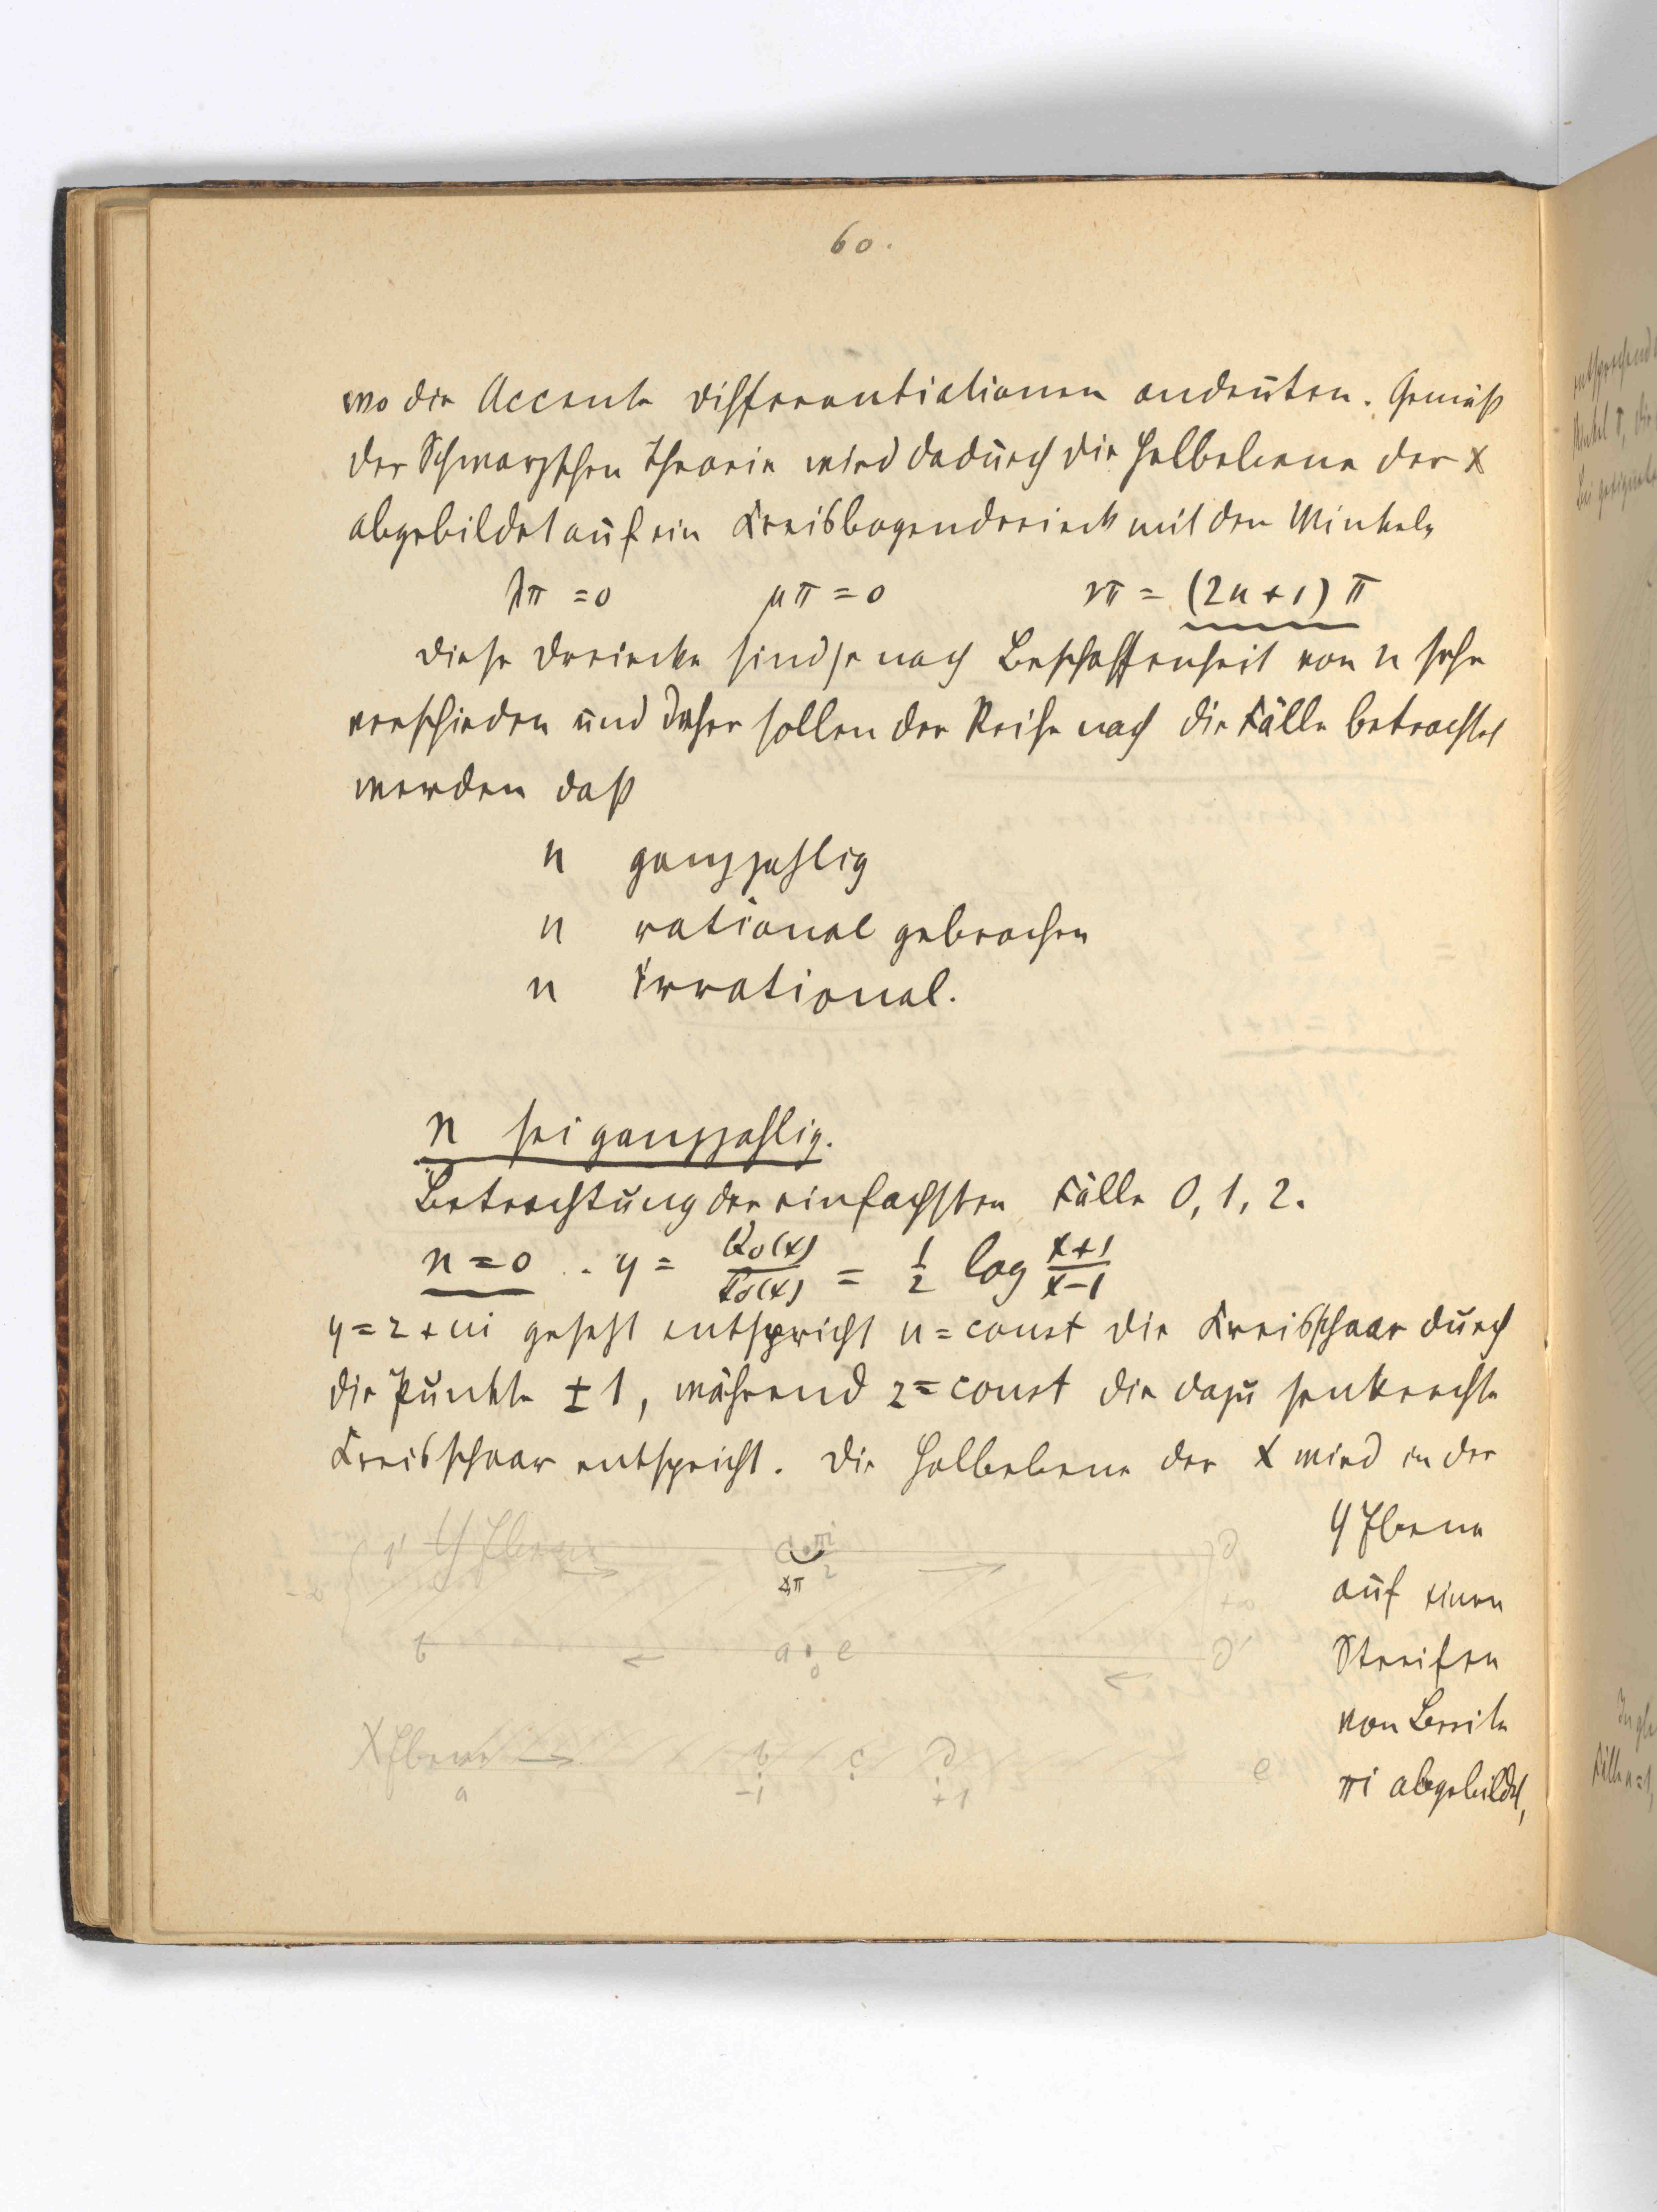 60.
wo die Accente Differentiationen andeuten. Gemäß
der Schwarzschen Theorie wird dadurch die Halbebene der X
abgebildet auf ein Kreisbogendreieck mit den Winkeln
λπ = 0 μπ = 0 νπ = (2n+1) π
Diese Dreiecke sind je nach Beschaffenheit von n sehr
verschieden und daher sollen der Reihe nach die Fälle betrachtet
werden daß
n ganzzahlig
n rational gebrochen
n irrational.
n sei ganzzahlig.
Betrachtung der einfachsten Fälle 0, 1, 2.
n = 0 . y = Q₀(x)/P₀(x) = 1/2 log (x+1)/(x-1)
y = z + ui gesetzt entspricht u = const die Kreisschaar durch
die Punkte ± 1, während z = const die dazu senkrechte
Kreisschaar entspricht. Die Halbebene der X wird in der
Y Ebene
auf einen
Streifen
von Breite
πi abgebildet,
Y Ebene
b a 0 e d'
X Ebene b c d e
a -1 +1